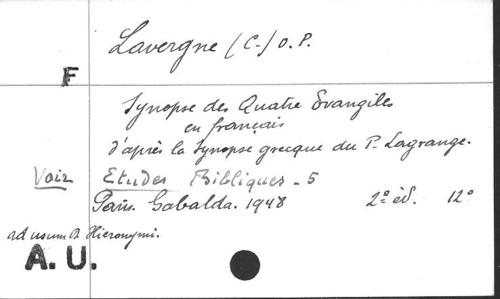 Lavergne (C-) O.P.
F
Synopse des Quatre Evangiles
en français
d'après la Synopse grecque du P. Lagrange.
Voir Etudes Bibliques - 5
Paris. Gabalda. 1948 2e éd. 12°
ad usum P. Hieronymi.
A. U.